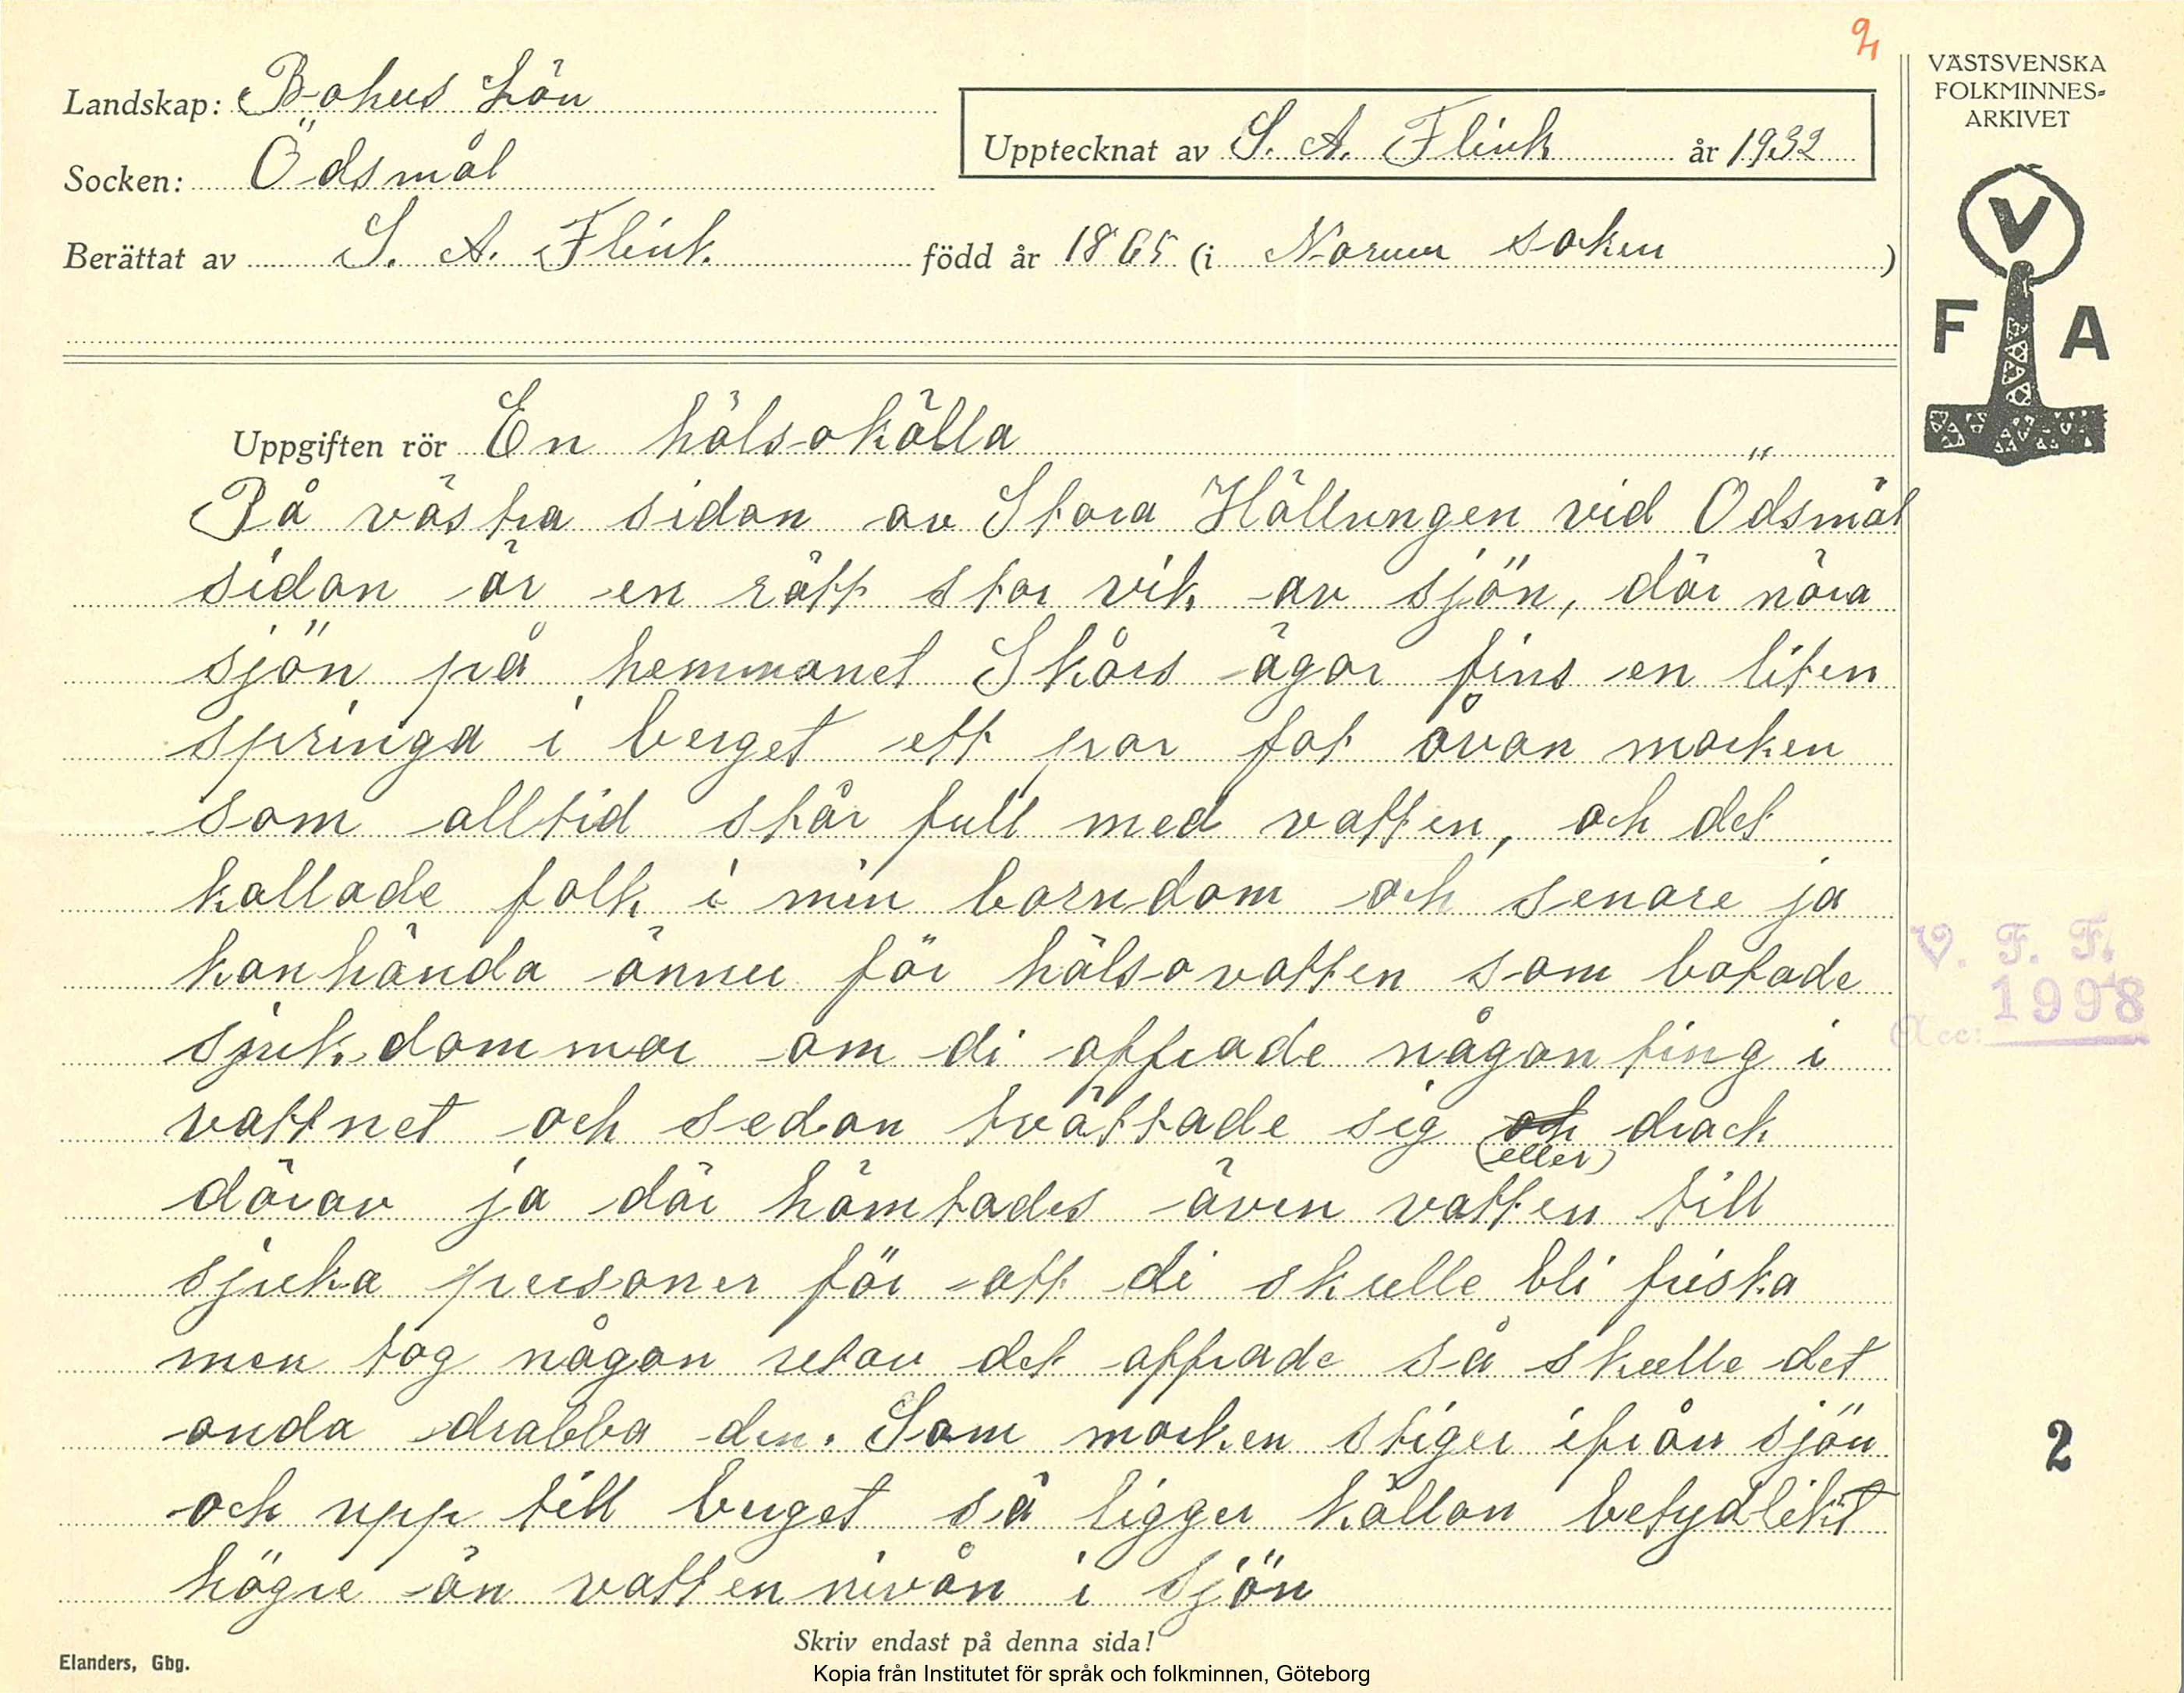 2
VÄSTSVENSKA
FOLKMINNES-
ARKIVET
Landskap: Bohus Län
Upptecknat av S. A. Flink år 1932
Socken: Ödsmål
Berättat av S. A. Flink. född år 1865 (i Norum soken)
V
F A
Uppgiften rör En hälsokälla
På västra sidan av Stora Hällungen vid Ödsmål
sidan är en rätt stor vik av sjön, där nära
sjön på hemmanet Skårs ägor fins en liten
springa i berget ett par fot åvan marken
som alltid står full med vatten, och det
kallade folk i min barndom och senare ja
kanhända ännu för hälsovatten som botade
sjukdommar om di offrade någonting i
vattnet och sedan tvättade sig och drack
(eller)
därav ja där hämtades även vatten till
sjuka personer för att di skulle bli friska
men tog någon utav det offrade så skulle det
onda drabba den. Som marken stiger ifrån sjön
och upp till berget så ligger källan betydlikt
högre än vattennivån i sjön
V. F. F.
Acc: 1998
2
Skriv endast på denna sida!
Elanders, Gbg.
Kopia från Institutet för språk och folkminnen, Göteborg